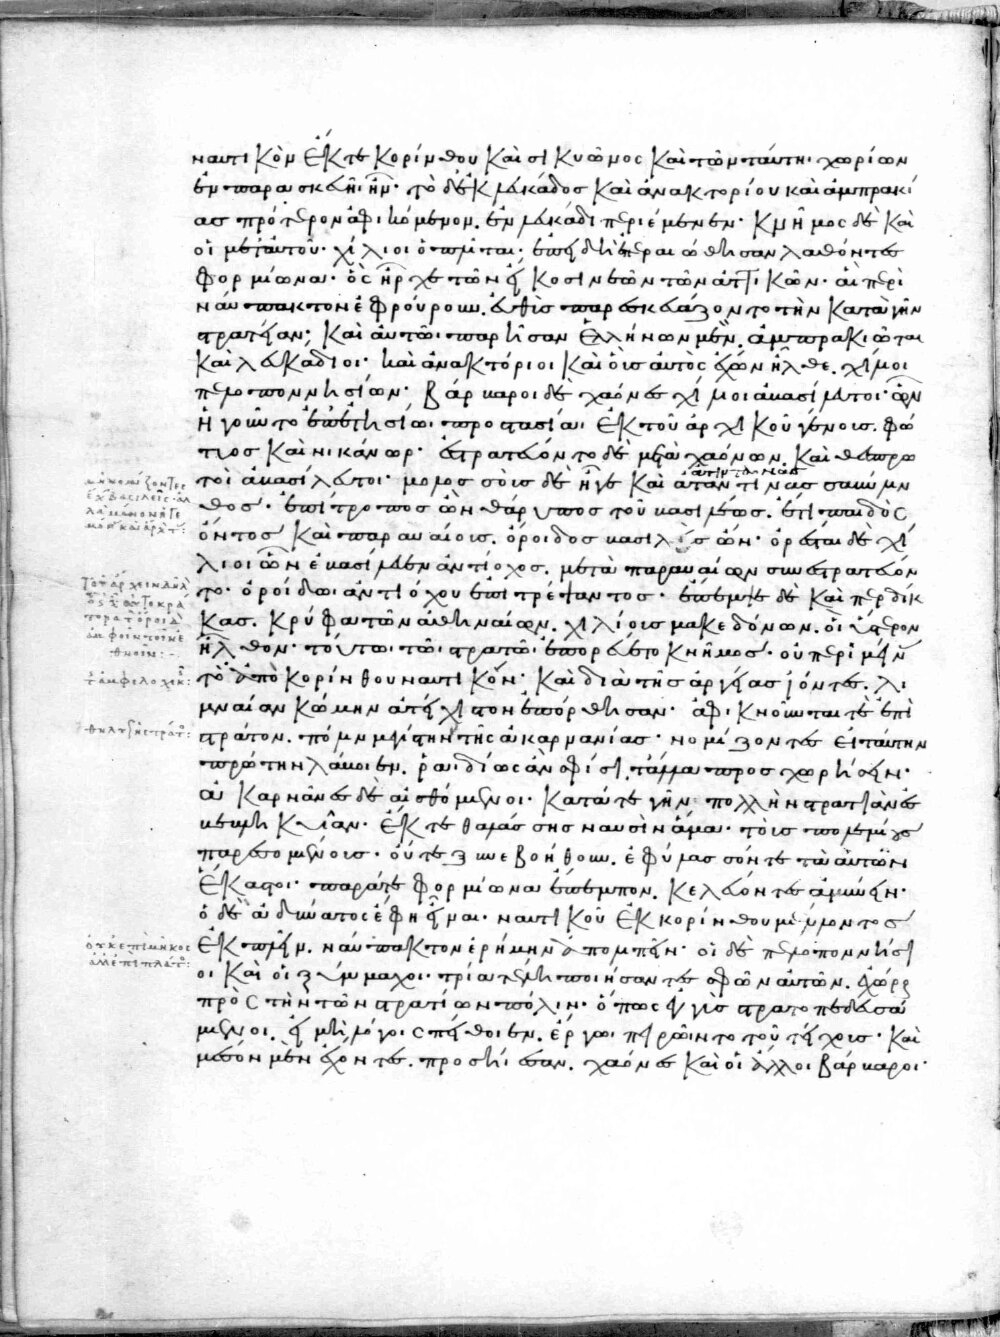 ναυτικὸν ἔκ τε κορίνθου καὶ σικυῶνος καὶ τῶν ταύτη χωρίων
ἐν παρασκευῆι ἦν· τὸ δ' ἐκ λευκάδος καὶ ἀνακτορίου καὶ ἀμπρακί
ας πρότερον ἀφικόμενον. ἐν λευκάδι περιέμενεν· κνῆμος δὲ καὶ
οἱ μετ' αὐτοῦ· χίλιοι ὁπλῖται· ἐπειδὴ ἐπεραιώθησαν λαθόντες
φορμίωνα· ὃς ἦρχε τῶν εἴκοσι νεῶν τῶν ἀττικῶν· αἳ περὶ
ναύπακτον ἐφρούρουν. εὐθὺς παρεσκευάζοντο τὴν κατὰ γῆν
στρατείαν· καὶ αὐτῶι παρῆσαν ἑλλήνων μὲν. ἀμπρακιῶται
καὶ λευκάδιοι· καὶ ἀνακτόριοι καὶ οὓς αὐτὸς ἔχων ἦλθε. χίλιοι
πελοποννησίων· βάρβαροι δὲ χάονες χίλιοι ἀβασίλευτοι· ὧν
ἡγοῦντο ἐπ' ἐτησίωι προστασίαι ἐκ τοῦ ἀρχικοῦ γένους. φώ
τυος καὶ νικάνωρ· ἐστρατεύοντο δὲ μετὰ χαόνων. καὶ θεσπρω
τοὶ ἀβασίλευτοι· μολοσσοὺς δὲ ἦγε καὶ ἀτιντᾶνας σαβύλιν
θος· ἐπίτροπος ὢν θάρυπος τοῦ βασιλέως. ἔτι παιδὸς
ὄντος καὶ παραυαίους. ὄροιδος βασιλεὺς ὤν· ὀρέσται δὲ χί
λιοι ὧν ἐβασίλευεν ἀντίοχος. μετὰ παραυαίων συνεστρατεύον
το· ὀροίδωι ἀντιόχου ἐπιτρέψαντος· ἔπεμψε δὲ καὶ περδίκ
κας. κρύφα τῶν ἀθηναίων. χιλίους μακεδόνων. οἳ ὕστερον
ἦλθον· τούτωι τῶι στρατῶι ἐπορεύετο κνῆμος· οὐ περιμείν
τὸ ἀπὸ κορίνθου ναυτικόν· καὶ διὰ τῆς ἀργείας ἰόντες. λι
μναίαν κώμην ἀτείχιστον ἐπόρθησαν· ἀφικνοῦνταί τε ἐπὶ
στράτον. πόλιν μεγίστην τῆς ἀκαρνανίας· νομίζοντες εἰ ταύτην
πρώτην λάβοιεν. ῥαιδίως ἂν σφίσι τἆλλα προσχωρήσειν·
ἀκαρνᾶνες δὲ αἰσθόμενοι· κατά τε γῆν πολλὴν στρατιὰν ἐσ
βεβληκυῖαν· ἔκ τε θαλάσσης ναυσὶν ἅμα· τοὺς πολεμίους
παρεσομένους· οὔτε ξυνεβοήθουν. ἐφύλασσόν τε τὰ αὑτῶν
ἕκαστοι· παρά τε φορμίωνα ἔπεμπον. κελεύοντες ἀμύνειν·
ὁ δὲ ἀδύνατος ἔφη εἶναι· ναυτικοῦ ἐκ κορίνθου μέλλοντος
ἐκπλεῖν. ναύπακτον ἐρήμην ἀπολιπεῖν· οἱ δὲ πελοποννήσι
οι καὶ οἱ ξύμμαχοι· τρία τέλη ποιήσαντες σφῶν αὐτῶν. ἐχώρουν
πρὸς τὴν τῶν στρατίων πόλιν· ὅπως ἐγγὺς στρατοπεδευσά
μενοι. εἰ μὴ λόγοις πείθοιεν. ἔργωι πειρῶιντο τοῦ τείχους· καὶ
μέσον μὲν ἔχοντες. προσήισαν. χάονες καὶ οἱ ἄλλοι βάρβαροι·
οὐκ ἐπὶ μῆκος
ἀλλ' ἐπὶ πλάτος: